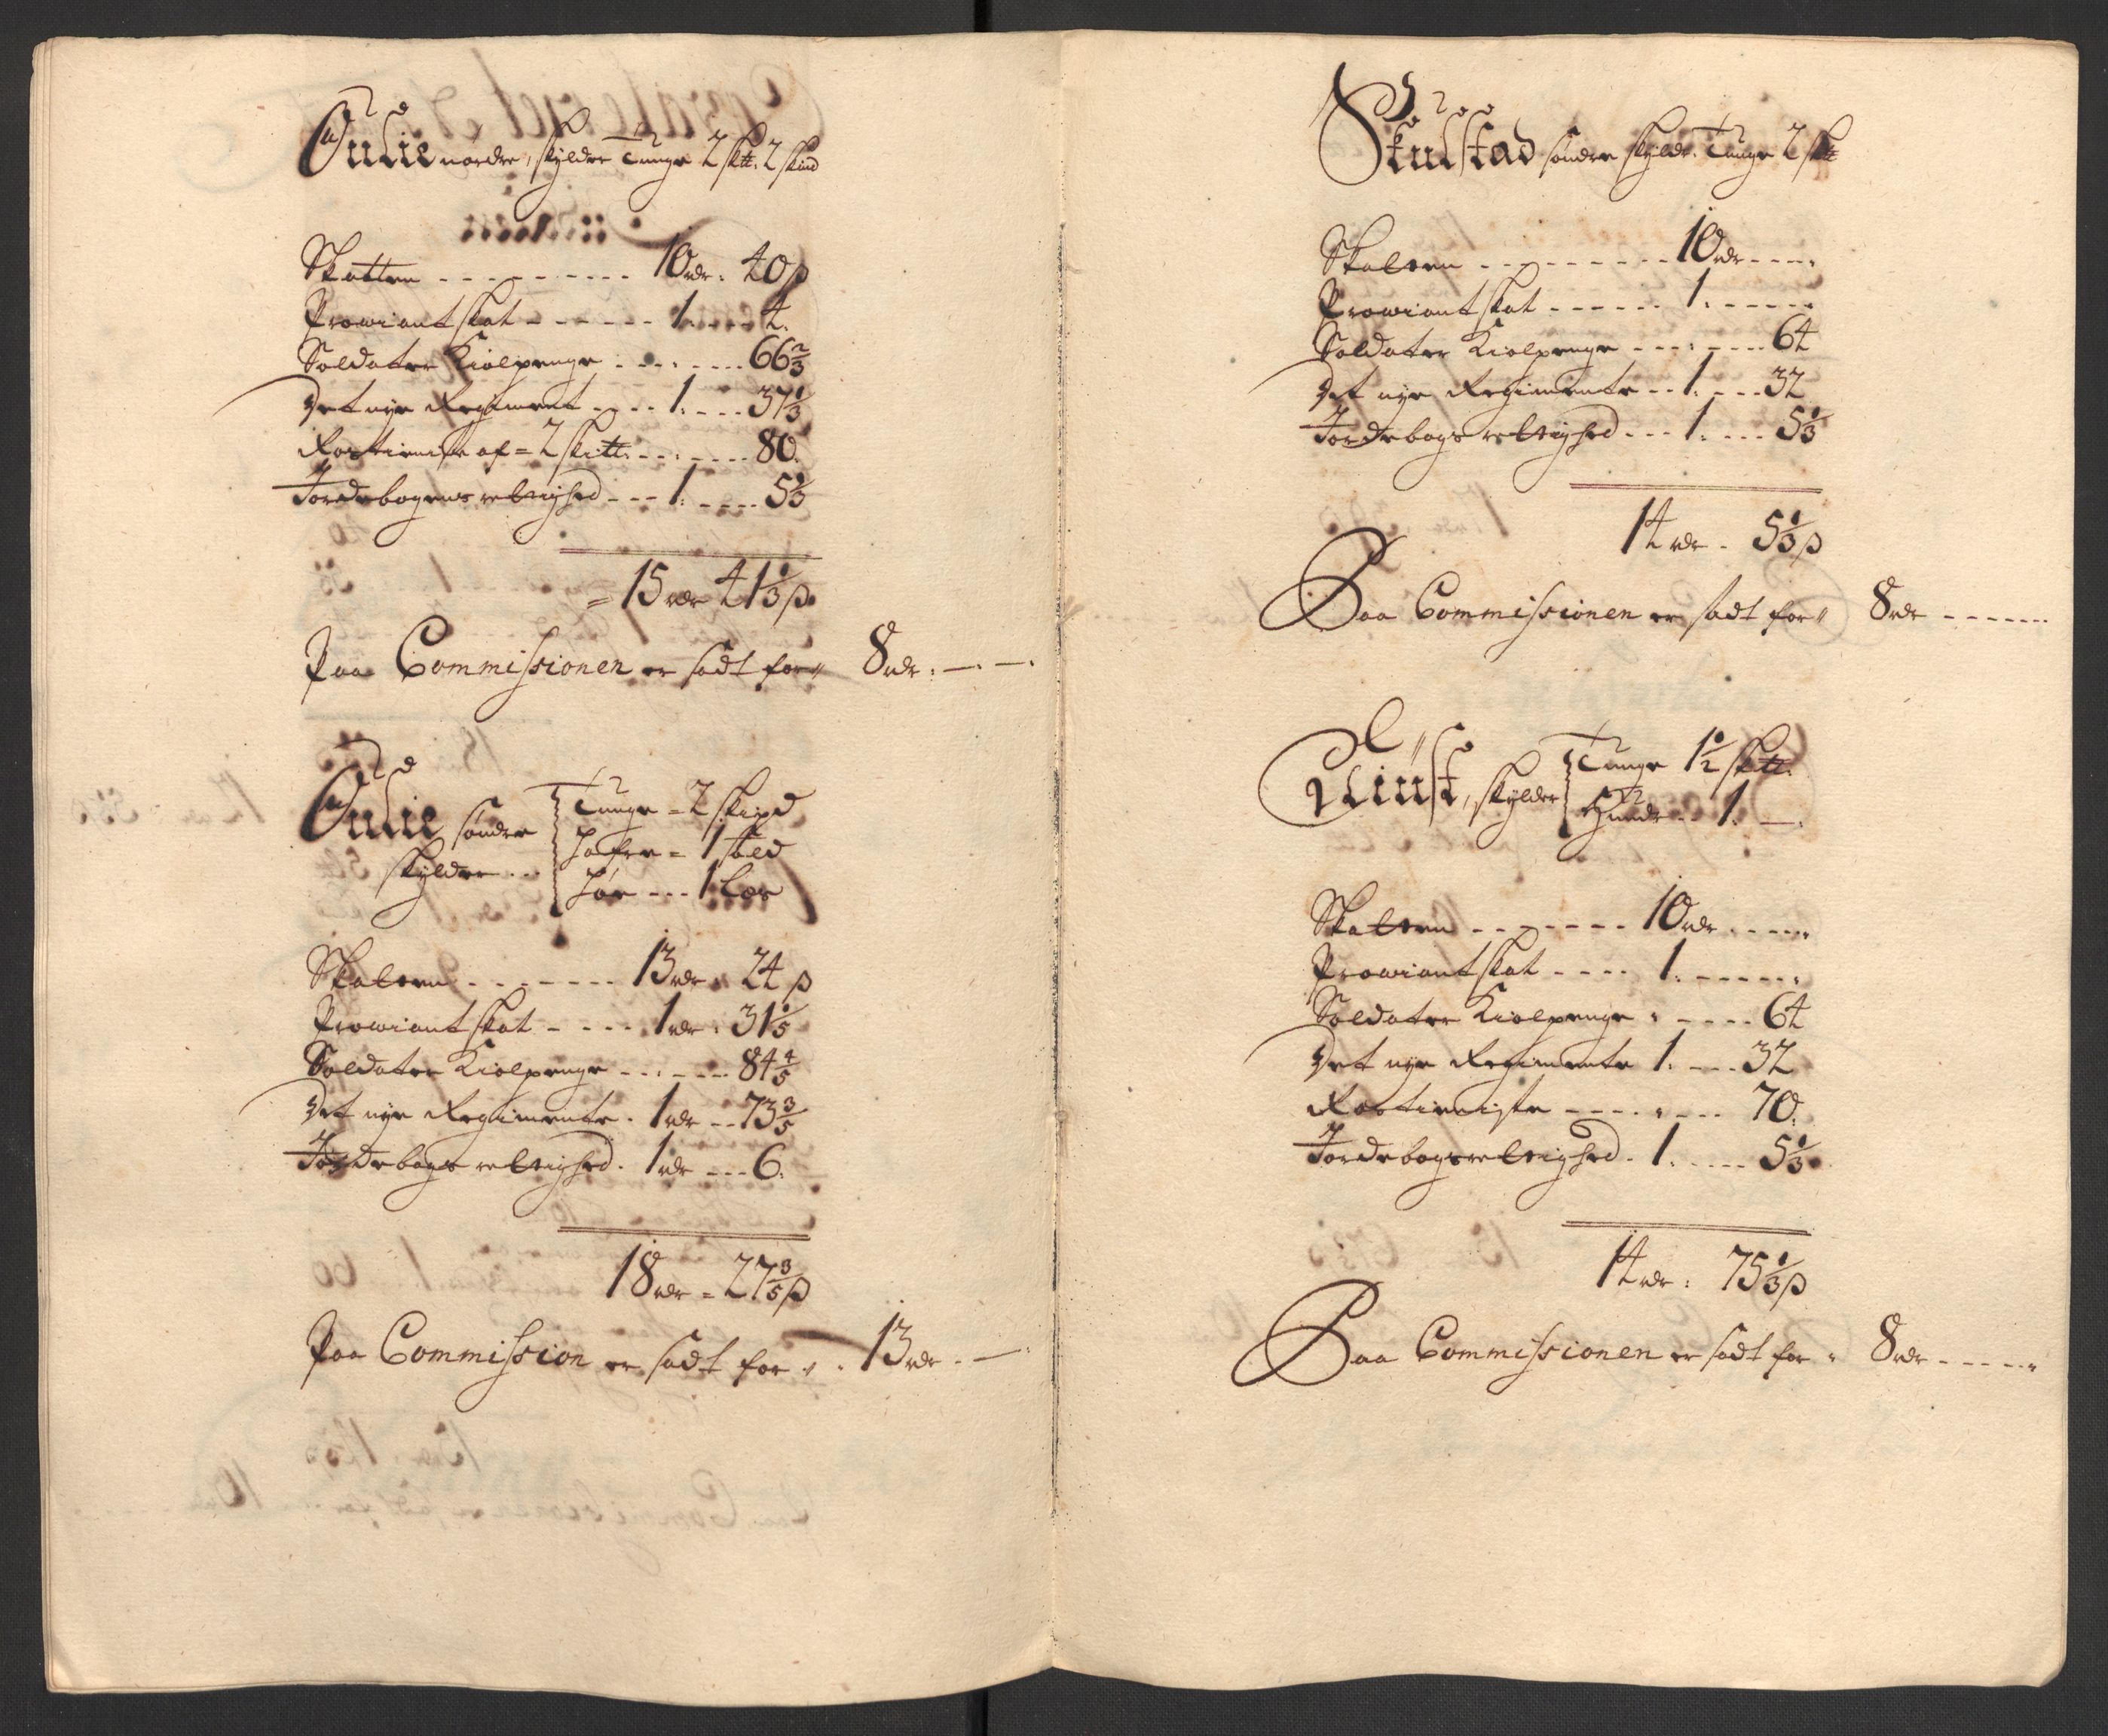 Gulie nordre, skylder Tunge 2 sktt: 2 skind
Skatten - - - - - - - - - 10 rdr: 40 ß
Prowiant skat - - - - - - 1. - - - 4.
Soldater Kiolpenge - - - - - - 66 2/3
Det nye Regiment - - - 1. - - - 37 1/3
Rostieniste af = 2 skitt: - - - - - - 80.
Jordebogens rettighed - - - 1. - - - - 5 1/3
= 15 rdr 41 1/3 ß.
Paa Commissionen er sadt for 8 rdr: — . — .
Gulie søndre
skylder - - -
Tunge = 2 skipd
Hafre = 1 sold
Høe - - - 1 Læs
Skatten - - - - - - - 13 rdr 24 ß
Prowiant skat - - - - 1 rdr: 31 1/5
Soldater Kiolpenge - - - - - - 84 4/5
Det nye Regimente - 1 rdr - - 73 3/5
Jordebogs rettighed - 1 rdr - - - 6.
18 rdr = 27 3/5 ß
Paa Commission er sadt for 13 rdr. — .
Skulstad søndre skyldr. Tunge 2 skt
Skatten - - - - - - - - - 10 rdr - - - -
Prowiant skat - - - - - - 1. - - - - -
Soldater Kiolpenge - - - - - - 64
Det nye Regimente - - 1. - - - 32
Jordebogs rettighed - - - 1. - - - 5 1/3
14 rdr - 5 1/3 ß
Paa Commissionen er sadt for 8 rdr - - - - - -
skylder
Tunge 1 1/2 sktt.
Hude - - 1. — .
Skatten - - - - - - - 10 rdr - - - - -
Prowiant skat - - - - 1. - - - - -
Soldater Kiolpenge - - - - 64
Det nye Regimente 1. - - - 32
Rostieniste - - - - - - - 70.
Jordebogs rettighed - 1. - - - - 5 1/3
14 rdr: 75 1/3 ß
Paa Commissionen er sadt for 8 rdr - - - - -